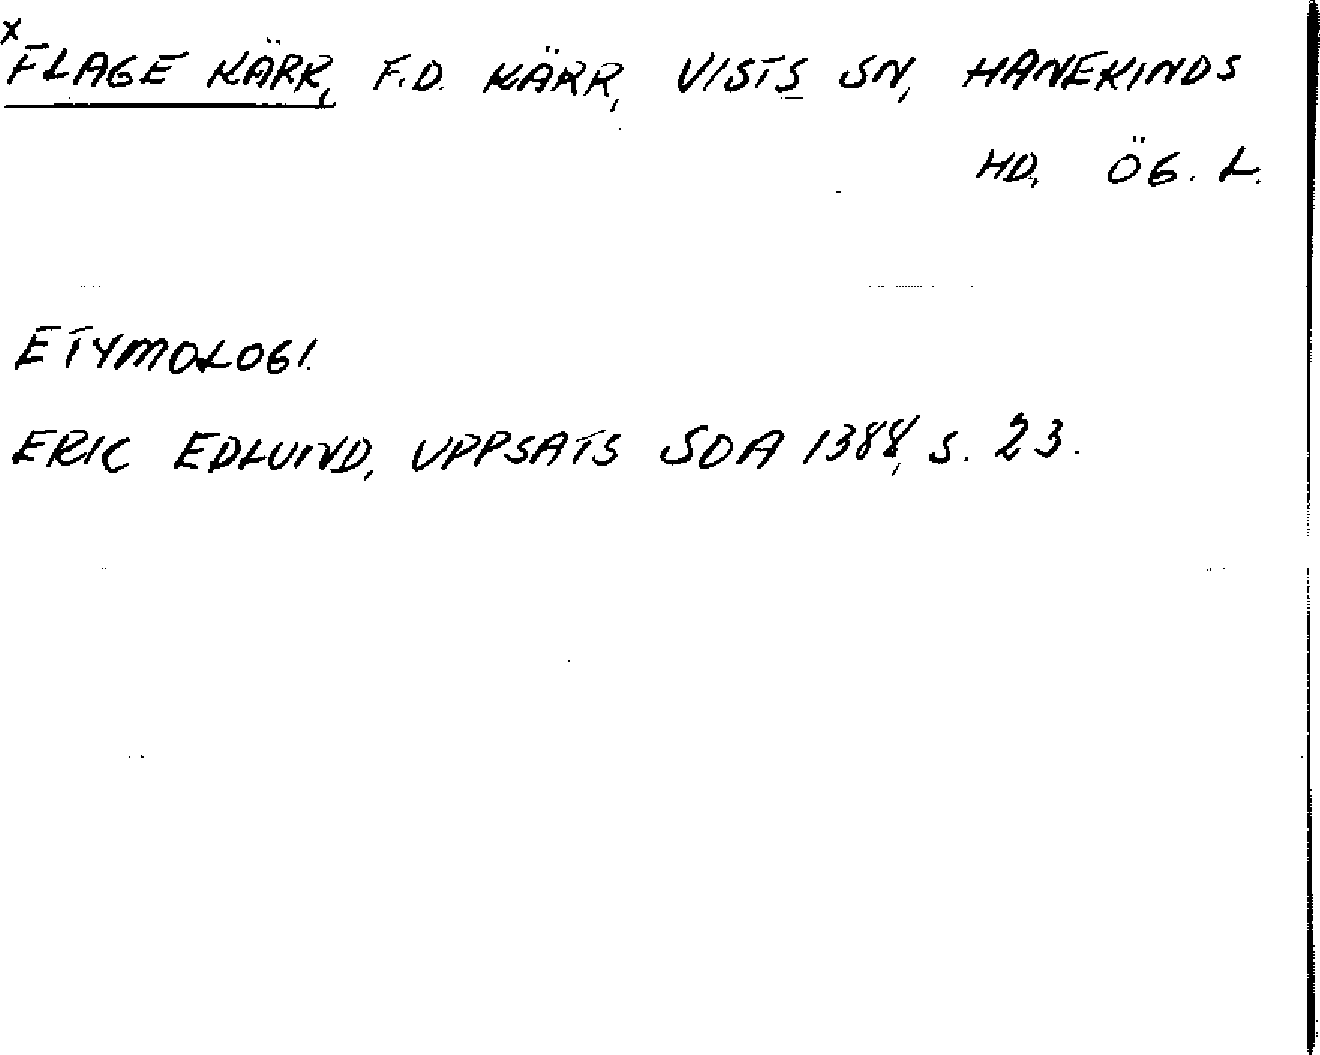 x FLAGE KÄRR, F.D. KÄRR, VISTS SN, HANEKINDS
HD, ÖG. L.
ETYMOLOGI.
ERIC EDLUND, UPPSATS SOA 1388, S. 23.